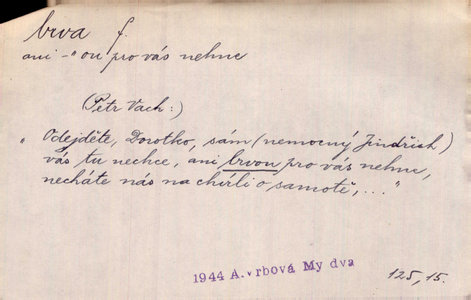 brva f.
ani -"ou pro vás nehne
(Petr Vach:)
„Odejděte, Dorotko, sám (nemocný Jindřich)
vás tu nechce, ani brvou pro vás nehne,
necháte nás na chvíli o samotě,..."
1944 A.vrbová My dva
125,15.